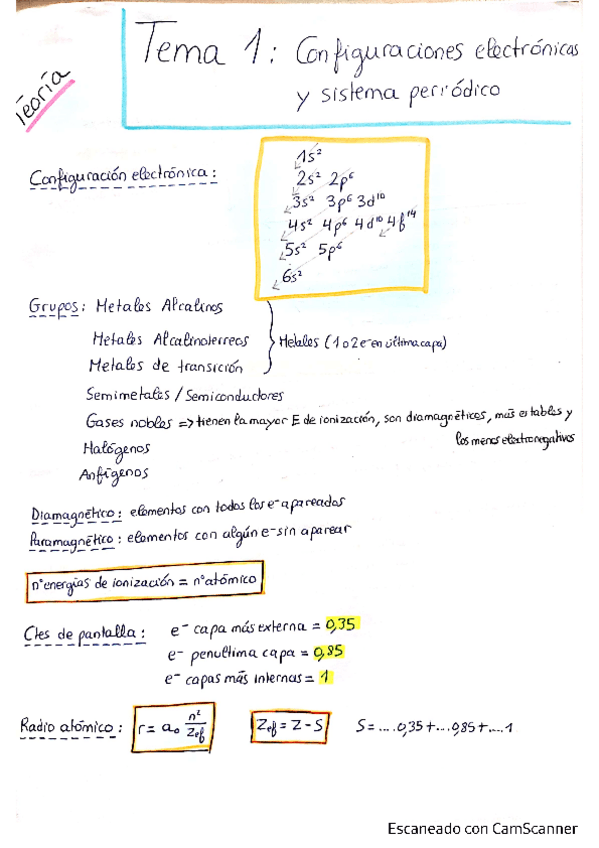 Teoría
Tema 1: Configuraciones electrónicas
y sistema periódico
Configuración electrónica:
1s²
2s² 2p⁶
3s² 3p⁶ 3d¹⁰
4s² 4p⁶ 4d¹⁰ 4f¹⁴
5s² 5p⁶
6s²
Grupos: Metales Alcalinos
Metales Alcalinoterreos
Metales de transición
Metales (1 o 2 e⁻ en última capa)
Semimetales / Semiconductores
Gases nobles => tienen la mayor E de ionización, son diamagnéticos, más estables y
los menos electronegativos
Halógenos
Anfígenos
Diamagnético: elementos con todos los e⁻ apareados
Paramagnético: elementos con algún e⁻ sin aparear
nº energías de ionización = nº atómico
Ctes de pantalla: e⁻ capa más externa = 0,35
e⁻ penúltima capa = 0,85
e⁻ capas más internas = 1
Radio atómico: r = a₀ n²/Zef Zef = Z - S S = .... 0,35 + ... 0,85 + .... 1
Escaneado con CamScanner